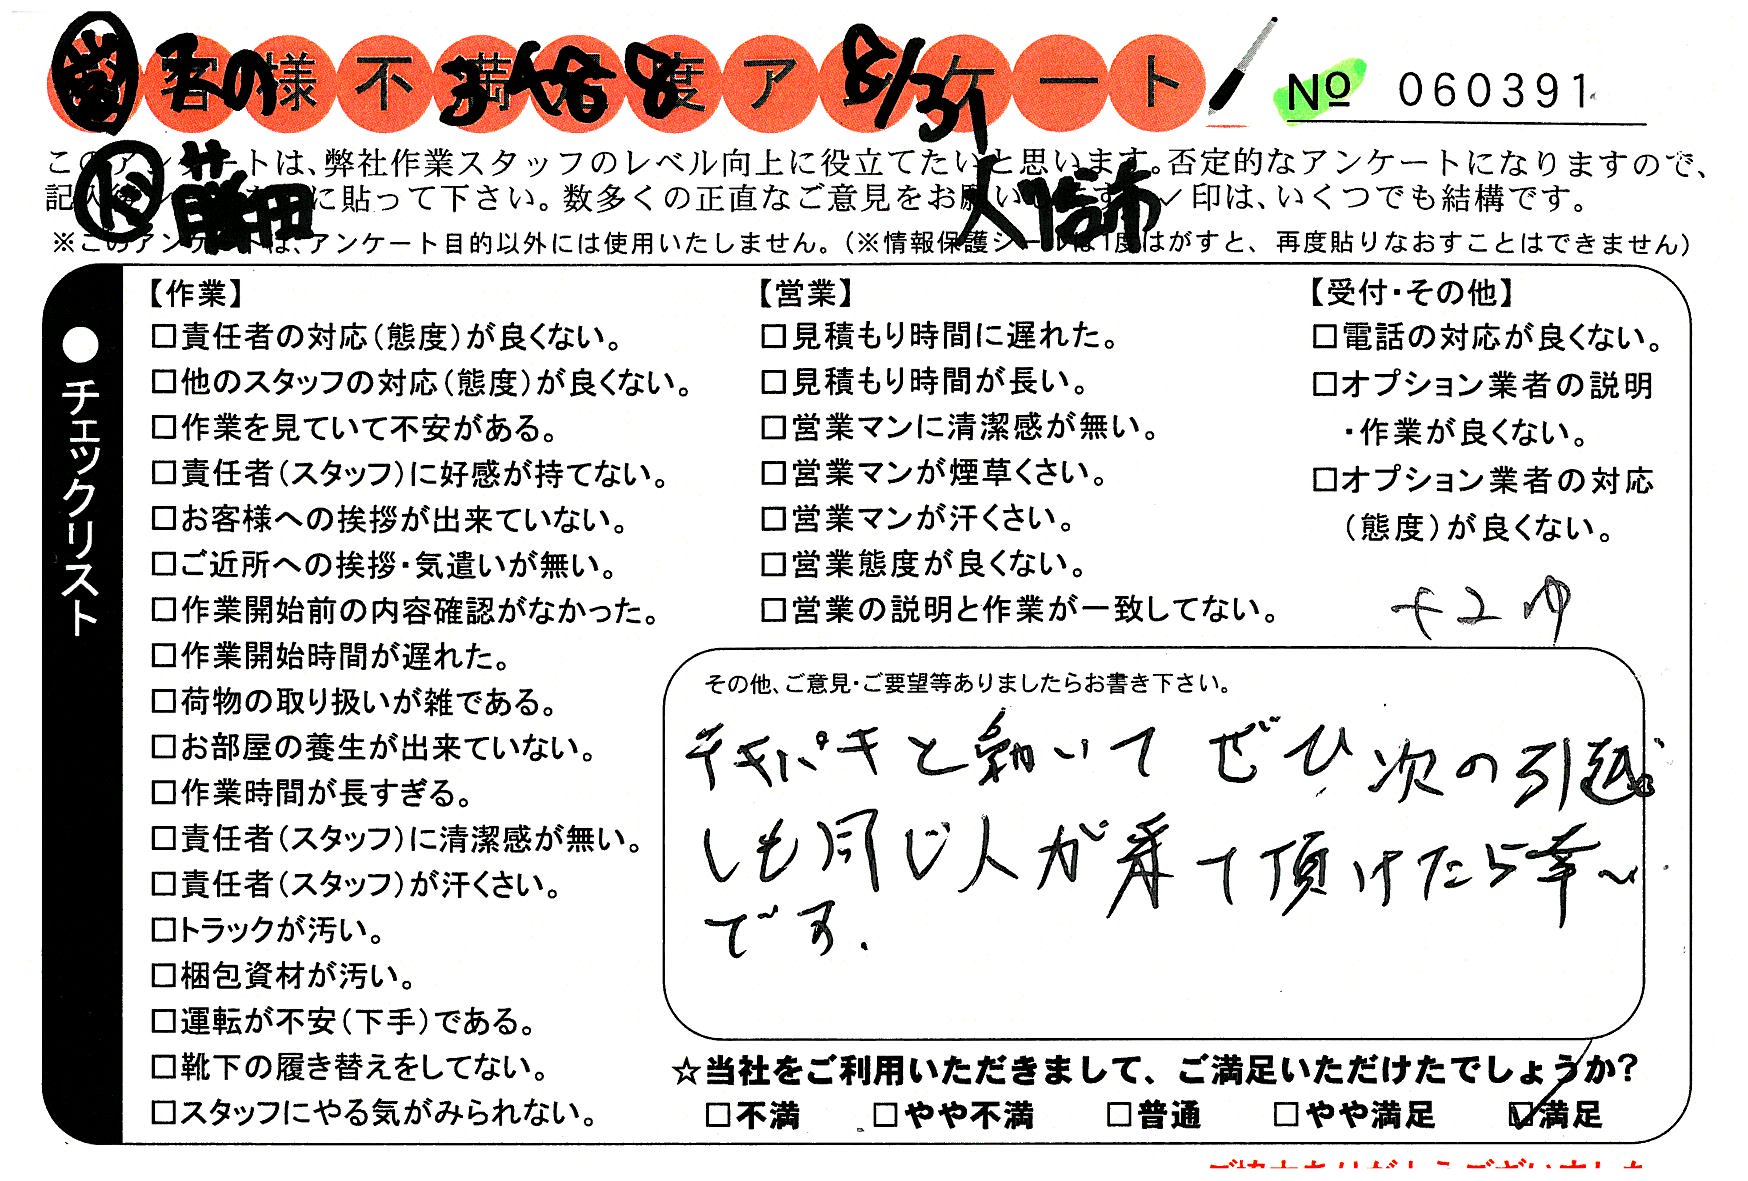 お客様不満足度アンケート
8/31
No 060391
このアンケートは、弊社作業スタッフのレベル向上に役立てたいと思います。否定的なアンケートになりますので、
記入後 に貼って下さい。数多くの正直なご意見をお願いします。✓印は、いくつでも結構です。
K 藤田
※このアンケートは、アンケート目的以外には使用いたしません。(※情報保護シールは1度はがすと、再度貼りなおすことはできません)
●チェックリスト
【作業】
□責任者の対応(態度)が良くない。
□他のスタッフの対応(態度)が良くない。
□作業を見ていて不安がある。
□責任者(スタッフ)に好感が持てない。
□お客様への挨拶が出来ていない。
□ご近所への挨拶・気遣いが無い。
□作業開始前の内容確認がなかった。
□作業開始時間が遅れた。
□荷物の取り扱いが雑である。
□お部屋の養生が出来ていない。
□作業時間が長すぎる。
□責任者(スタッフ)に清潔感が無い。
□責任者(スタッフ)が汗くさい。
□トラックが汚い。
□梱包資材が汚い。
□運転が不安(下手)である。
□靴下の履き替えをしてない。
□スタッフにやる気がみられない。
【営業】
□見積もり時間に遅れた。
□見積もり時間が長い。
□営業マンに清潔感が無い。
□営業マンが煙草くさい。
□営業マンが汗くさい。
□営業態度が良くない。
□営業の説明と作業が一致してない。
【受付・その他】
□電話の対応が良くない。
□オプション業者の説明
・作業が良くない。
□オプション業者の対応
(態度)が良くない。
その他、ご意見・ご要望等ありましたらお書き下さい。
テキパキと動いて ぜひ次の引越
しも同じ人が来て頂けたら幸い
です.
☆当社をご利用いただきまして、ご満足いただけたでしょうか?
□不満 □やや不満 □普通 □やや満足 ☑満足